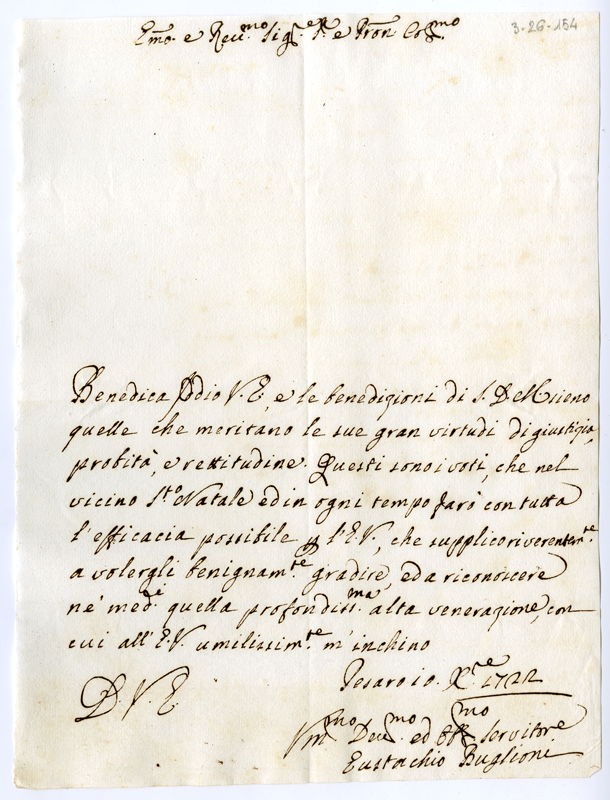 Emo. e Reu.mo Sig.r P.e e Pron Co.mo
3-26-154
Benedica Iddio V.E., e le benedizioni di S.D.M. sieno
quelle che meritano le sue gran virtudi di giustizia,
probità, e rettitudine. Questi sono i voti, che nel
vicino S.to Natale ed in ogni tempo farò con tutta
l'efficacia possibile p l'E.V., che supplico riverentem.te
a volergli benignam.te gradire, ed a riconoscere
ne' med.i quella profondiss.ma alta venerazione, con
cui all'E.V. umilissim.te m'inchino
D.V.E.
Pesaro 10. X.re 1722
Vm.mo Deu.mo ed Ob.mo Servitore
Eustachio Buglioni